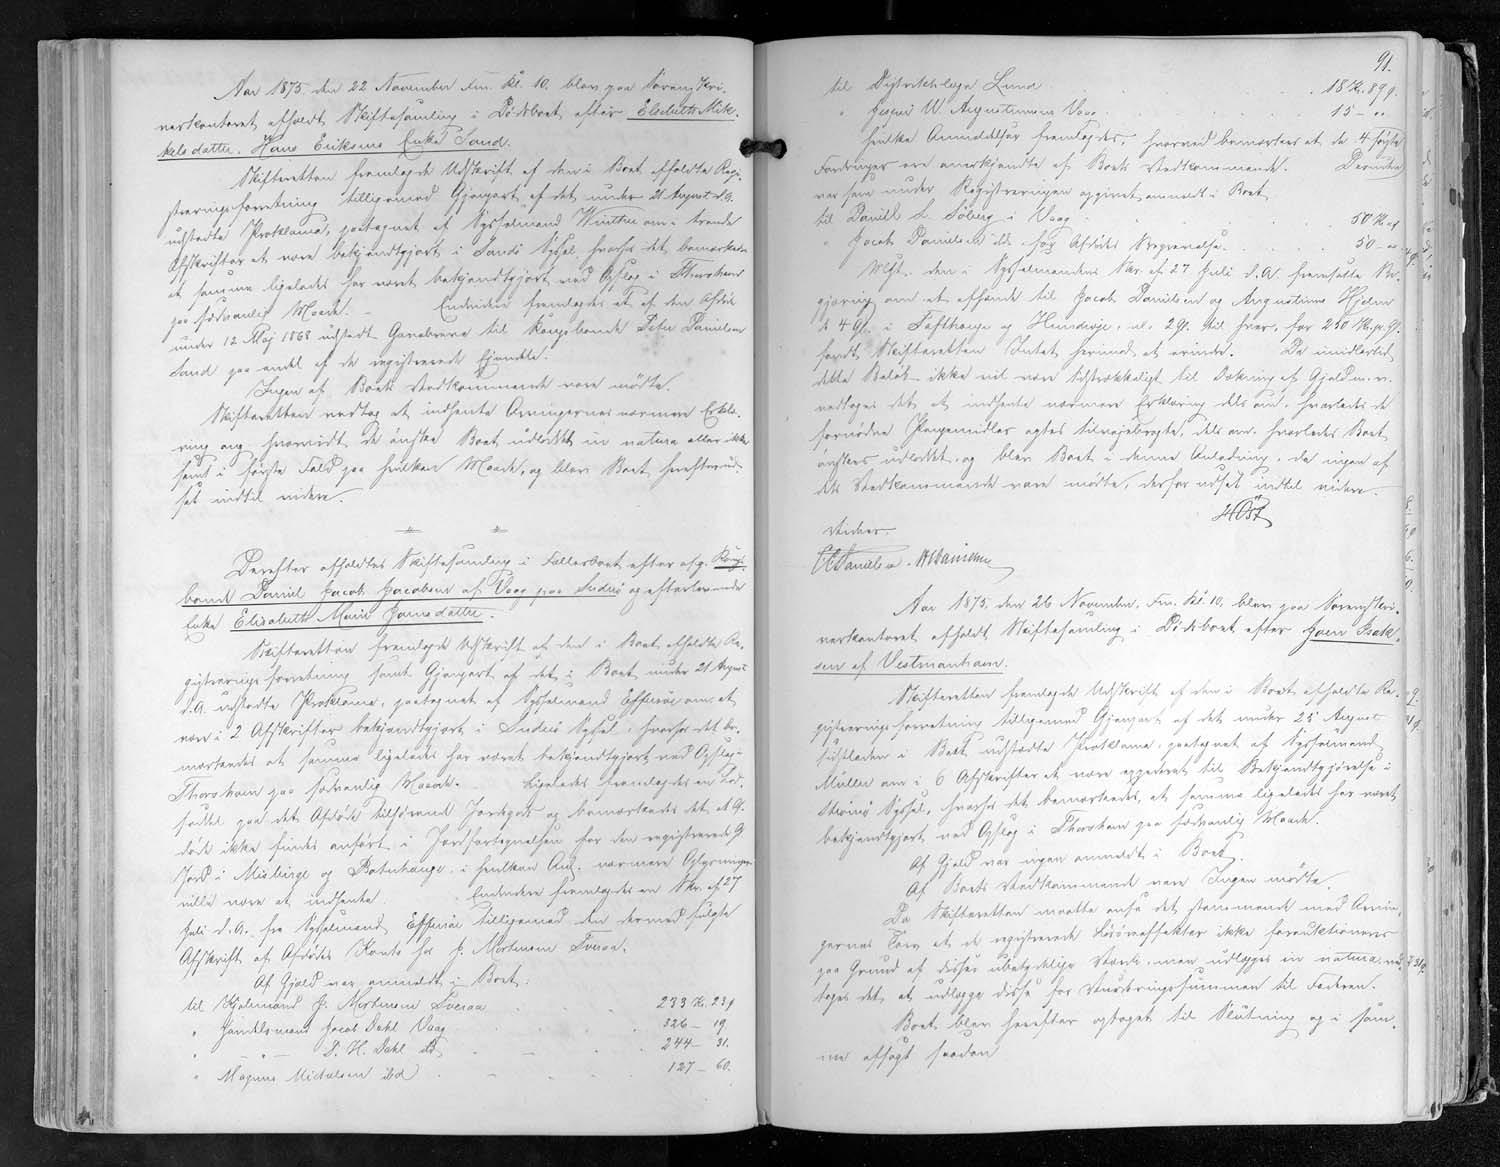 Aar 1875, den 22 November Fm. Kl. 10, blev paa Sorenskri-
verkontoret afholdt Skiftesamling i Dødsboet efter Elsebeth Mik-
kelsdatter, Hans Eriksens Enke Sand.
Skifteretten fremlagde Udskrift af den i Boet afholdte Regi-
streringsforretning tilligemed Gjenpart af det under 21 August d.A.
udstedte Proklama, paategnet af Sysselmand Winther om i trende
Afskrifter at være bekjendtgjort i Sandø Syssel, hvorhos det bemærkedes
at samme ligeledes har været bekjendtgjort ved Opslag i Thorshavn
paa sædvanlig Maade. – Endvidere fremlagdes et af den Afdøde
under 12 Maj 1868 udstedt Gavebrev til Kongsbonde Peter Danielsen
Sand paa endel af de registrerede Ejendele.
Ingen af Boets Vedkommende vare mødte.
Skifteretten vedtog at indhente Arvingernes nærmere Erklæ-
ring ang. hvorvidt de ønske Boet udloddet in natura eller ikke
samt i første Fald paa hvilken Maade, og blev Boet herefter ud-
sat indtil videre.
Derefter afholdtes Skiftesamling i Fællesboet efter afg. Kongs-
bonde Daniel Jacob Jacobsen af Vaag paa Suderø og efterlevende
Enke Elisabeth Marie Joensdatter.
Skifteretten fremlagde Udskrift af den i Boet afholdte Re-
gistreringsforretning samt Gjenpart af det i Boet under 21 August
d.A. udstedte Proklama, paategnet af Sysselmand Effersøe om at
være i 2 Afskrifter bekjendtgjort i Suderø Syssel, hvorhos det be-
mærkedes at samme ligeledes har været bekjendtgjort ved Opslag i
Thorshavn paa sædvanlig Maade. Ligeledes fremlagdes en
paa det Afdøde tilhørende Jordegods og bemærkedes det, at Af-
døde ikke findes anført i Jordfortegnelsen for den registrerede
Jord i Misbirge og Botnhauge, i hvilken Anl. nærmere Oplysninger
ville være at indhente. Endvidere fremlagdes en Skr. af 27
Juli d.A. fra Sysselmand Effersøe tilligemed den dermed fulgte
Afskrift af Afdødes Konto hos J. Mortensen Tveraa.
Af Gjæld var anmeldt i Boet:
til Kjøbmand J. Mortensen Tveraa 233 Kr. 23 Ø
" Handelsmand Jacob Dahl Vaag 326 – 19
" – " – D. H. Dahl ibd 244 – 31.
" Magnus Michelsen ibd 127 – 60.
91.
til Distriktslæge Lund 18 Kr. 89 Ø.
" Jógvan W. Augustinussen Vaag 15 – "
hvilke Anmeldelser fremlagdes, hvorved bemærkes at de 4 første
Fordringer ere anerkjendte af Boets Vedkommende. Desuden
var som under Registreringen opgivet anmeldt i Boet
til Daniel L. Søberg i Vaag 50 Kr. "
" Jacob Danielsen ibd. for Afdødes Begravelse 50 – "
Mht. den i Sysselmandens Skr. af 27 Juli d.A. fremsatte Be-
gjæring om at afhænde til Jacob Danielsen og Augustinus Hjelm
4 Gl. i Tofthauge og nl. 2 Gl. til hver, for 250 Kr. pr. Gl.
fandt Skifteretten Intet herimod at erindre. Da imidlertid
dette Beløb ikke vil være tilstrækkeligt til Dækning af Gjæld m.v.
vedtoges det at indhente nærmere Erklæring dels om, hvorledes de
fornødne Pengemidler agtes tilvejebragte, dels om, hvorledes Boet
ønskes udloddet, og blev Boet i denne Anledning, da ingen af
dets Vedkommende vare mødte, derfor udsat indtil videre.
HOst
Vidner:
Danielsen. Hansen
Aar 1875, den 26 November, Fm. Kl. 10, blev paa Sorenskri-
verkontoret afholdt Skiftesamling i Dødsboet efter Joen Isak-
sen af Vestmanhavn.
Skifteretten fremlagde Udskrift af den i Boet afholdte Re-
gistreringsforretning tilligemed Gjenpart af det under 25 August
sidstleden i Boet udstedte Proklama, paategnet af Sysselmand
Müller om i 6 Afskrifter at være expederet til Bekjendtgjørelse i
Strømø Syssel, hvorhos det bemærkedes, at samme ligeledes har været
bekjendtgjort ved Opslag i Thorshavn paa sædvanlig Maade.
Af Gjæld var ingen anmeldt i Boet.
Af Boets Vedkommende vare Ingen mødte.
Da Skifteretten maatte anse det stemmende med Arvin-
gernes Tarv at de registrerede Løsøreeffekter ikke forauktioneres
paa Grund af disses ubetydelige Værdi, men udlægges in natura, ved-
toges det, at udlægge disse for Vurderingssummen til Faderen.
Boet blev herefter optaget til Slutning og i sam-
me afsagt saadan